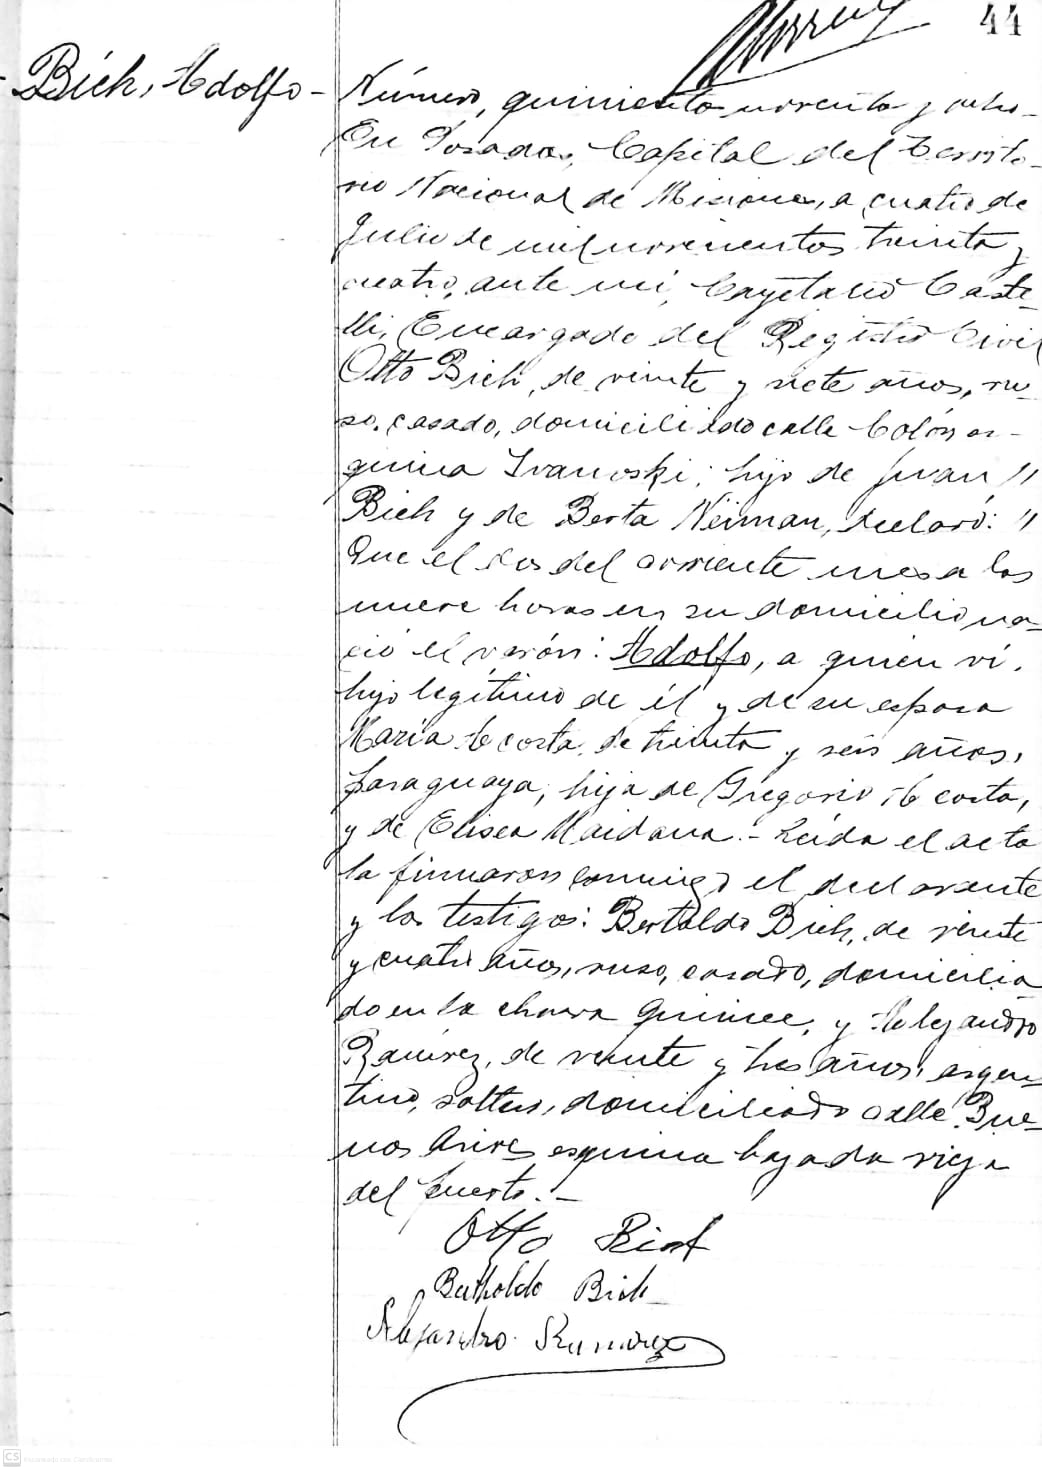 44
Bich, Adolfo -
Número, quinientos noventa y ocho.-
En Posadas, Capital del Territo-
rio Nacional de Misiones, a cuatro de
Julio de mil novecientos treinta y
cuatro, ante mí, Cayetano Caste-
lli, Encargado del Registro Civil
Otto Bich, de veinte y siete años, ru-
so, casado, domiciliado calle Colón es-
quina Ivanoski; hijo de Juan "
Bich y de Berta Neiman, declaró: "
Que el dos del corriente mes a las
nueve horas en su domicilio na-
ció el varón: Adolfo, a quien ví,
hijo legítimo de él y de su esposa
María Acosta, de treinta y seis años,
paraguaya, hija de Gregorio Acosta,
y de Elisea Maidana.- Leída el acta
la firmaron conmigo el declarante
y los testigos: Bertoldo Bich, de veinte
y cuatro años, ruso, casado, domicilia
do en la chacra quince, y Alejandro
Ramírez, de veinte y tres años, argen-
tino, soltero, domiciliado calle Bue-
nos Aires esquina bajada vieja
del puerto.-
Otto Bich
Bertholdo Bich
Alejandro Ramirez
CS